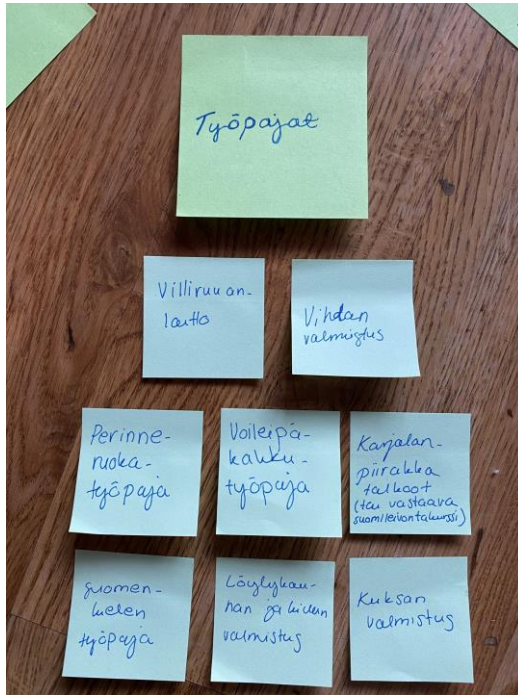 Työpajat
Villiruuan-
laitto
Vihdan
valmistus
Perinne-
ruoka-
työpaja
Voileipä-
kakku-
työpaja
Karjalan-
piirakka
talkoot
(tai vastaava
suomileivontakurssi)
Suomen-
kielen
työpaja
Löylykau-
han ja kiulun
valmistus
Kuksan
valmistus